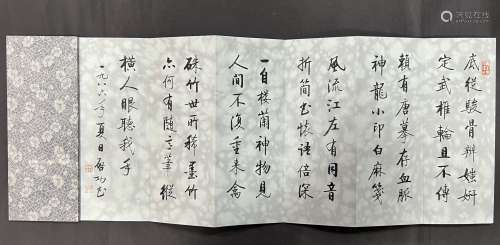 底從駿骨辨媸妍
定武椎輪且不傳
賴有唐摹存血脈
神龍小印白麻箋
風流江左有同音
折簡書懷語倍深
一自楼蘭神物見
人间不復重来禽
硃竹世所稀墨竹
亦何有随意筆縱
横人眼聽我手
一九八六年夏日啟功書